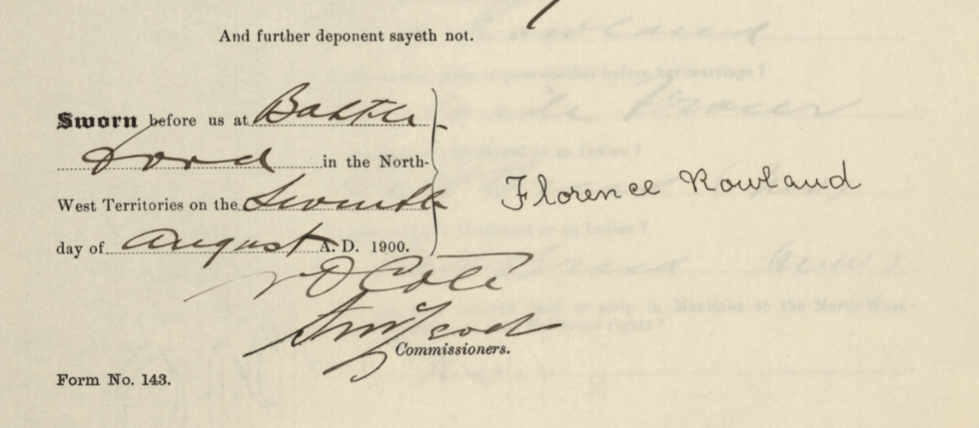 And further deponent sayeth not.
Sworn before us at Battle
ford in the North-
West Territories on the Seventh
day of August A.D. 1900.
Florence Rowland
Coté
Commissioners.
Form No. 143.